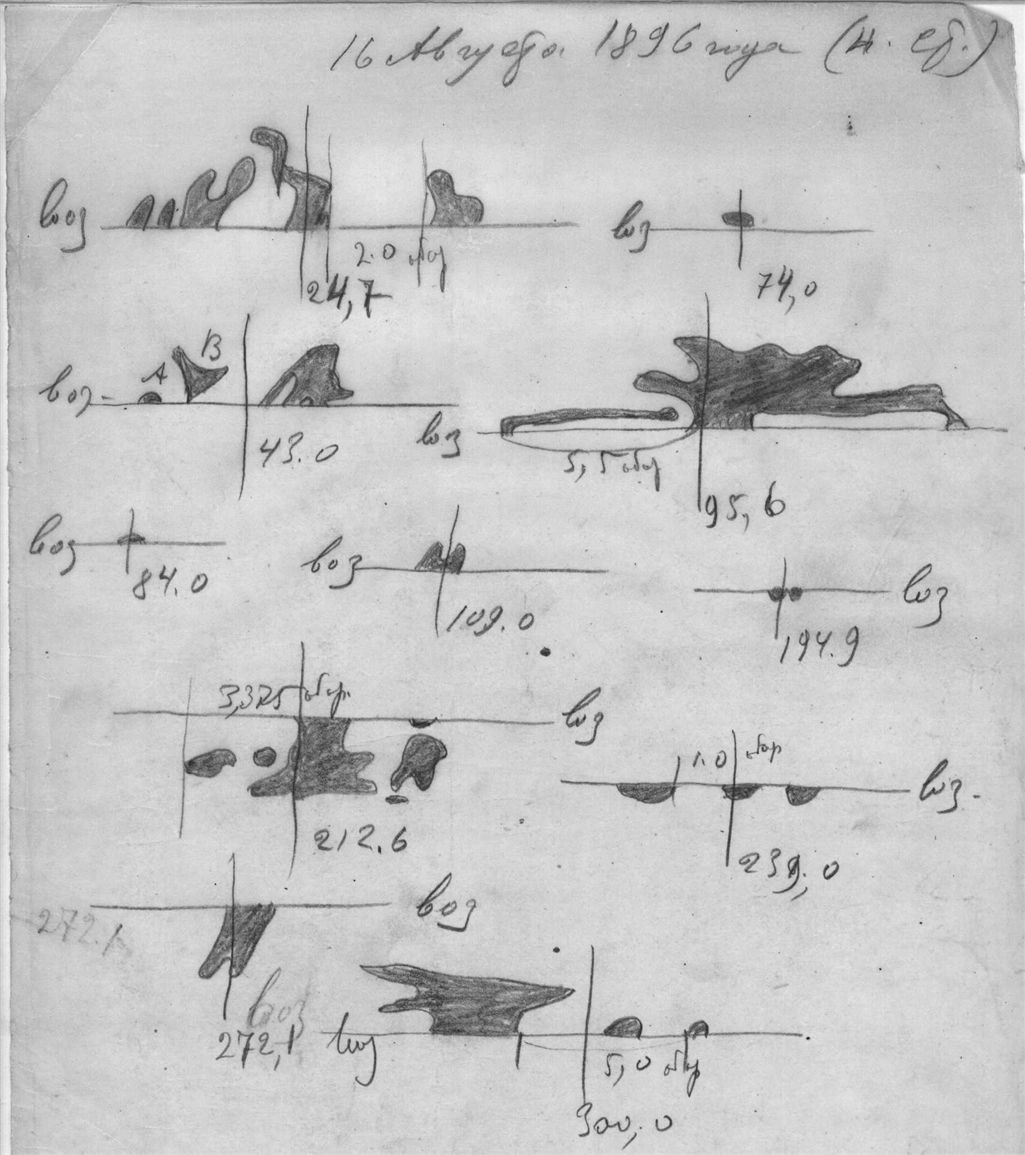 16 Августа 1896 года (н. ст.)
воз
2.0 обор
24,7
воз
74,0
воз
A B
43.0
воз
5,5 обор
95,6
воз
84.0
воз
109.0
воз
194.9
3,375 обор.
воз
212.6
1.0 обор
воз.
239,0
воз
272.1
воз
272,1
воз
5,0 обор
300,0